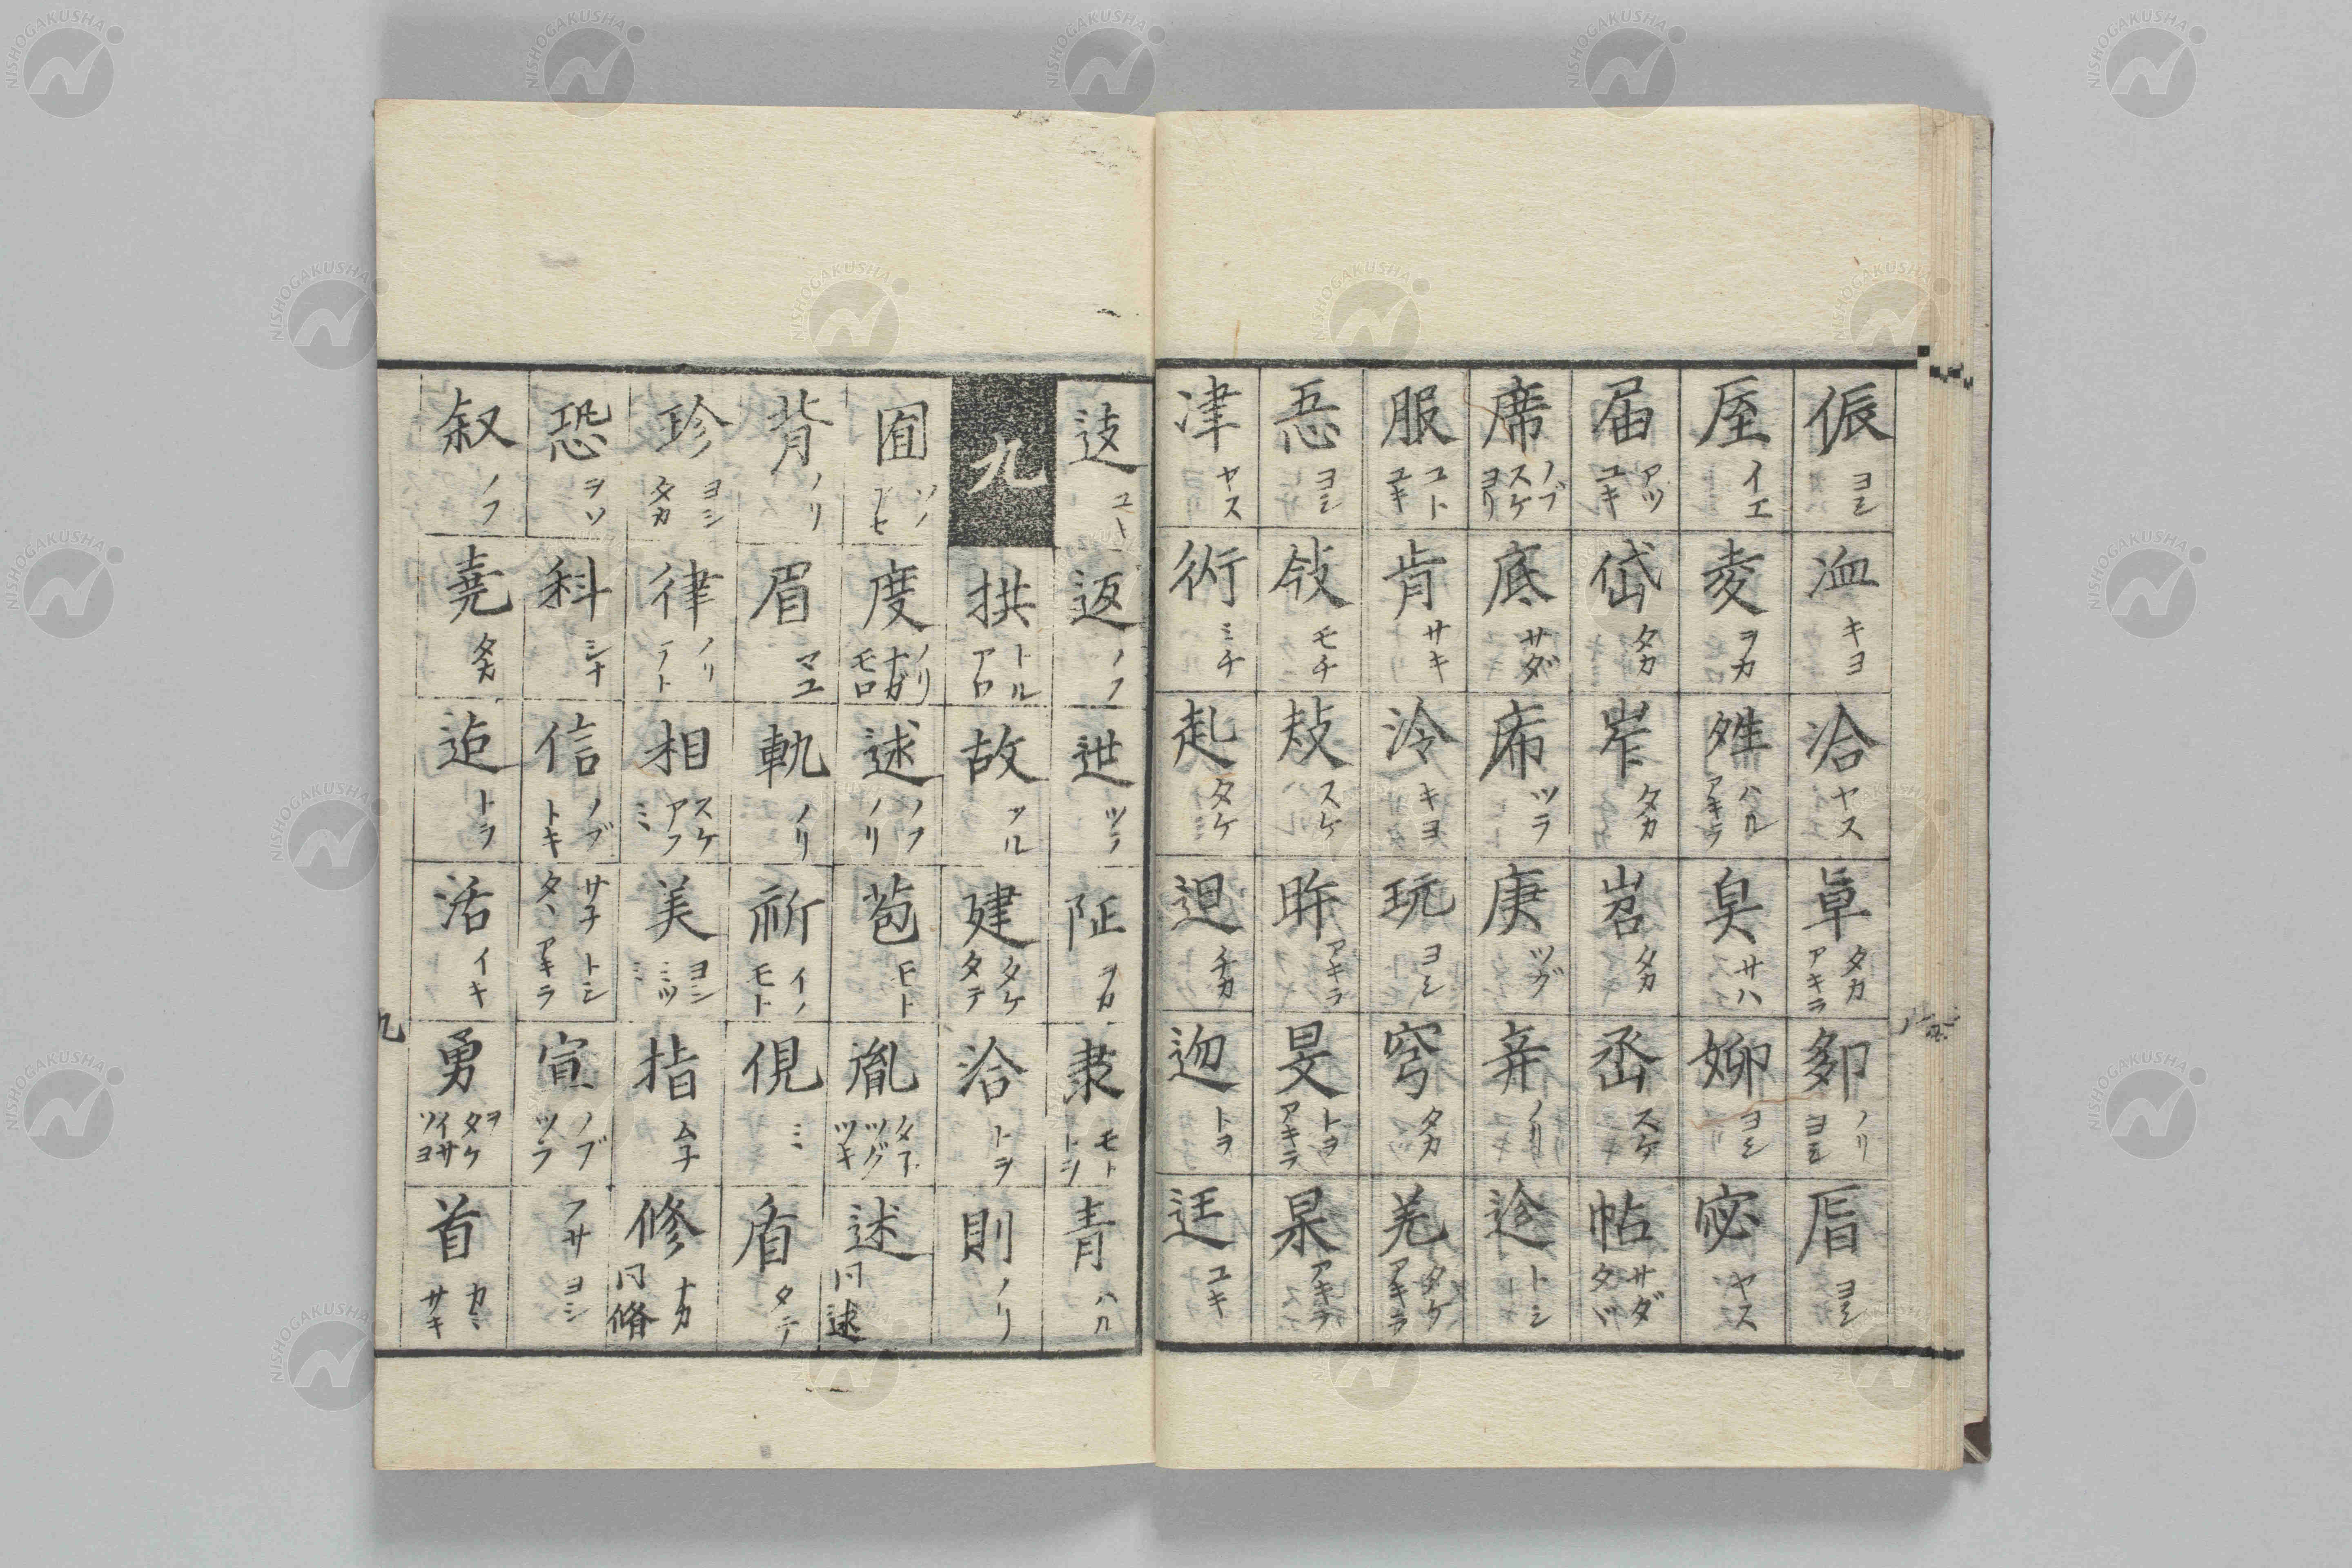 侲 ヨシ 洫 キヨ 洽 ヤス 阜 タカ アキラ 卵 ノリ ヨシ 眉 ヨシ
屋 イエ 夌 ヲカ 臭 サハ 妳 ヨシ 宓 ヤス
届 アツ ユキ 岱 タカ 岝 タカ 岧 タカ 丞 スケ 帖 サダ タヾ
席 ノブ スケ ヨリ 底 サダ 庯 ツラ 庚 ツグ 弃 ノリ 迨 トシ
服 コト ユキ 肯 サキ 泠 キヨ 玩 ヨシ 穹 タカ 羌 タケ アキラ
忢 ヨシ 敆 モチ 敊 スケ 昨 アキラ 旻 トヲ アキラ 杲 アキラ
津 ヤス 術 ミチ 赴 タケ 迴 チカ 迩 トヲ 迋 ユキ
返 ノフ 迣 ツラ 阯 ヲカ 隶 モト トシ 青 ハル
九 拱 トル 故 フル 建 タケ タテ 洽 トヲ 則 ノリ
囿 ソノ 度 ノリ ナガ モロ 述 ノフ ノリ 苞 モト 胤 ツグ ツキ 述 同逑
背 ノリ 眉 マユ 軌 ノリ 祈 イノ モト 俔 ミ 盾 タテ
珍 ヨシ タカ 律 ノリ 相 スケ アフ ミ 美 ヨシ ミツ ミ 指 ムチ 修 ナカ 同脩
恐 ヲソ 科 シナ 信 ノブ トキ サ子 トシ タヽ アキラ 宣 ノブ ツラ フサ ヨシ
叙 ノフ 堯 タカ 迨 トラ 活 イキ 勇 ヲ タケ イサ ツヨ 首 カミ サキ
九
NISHOGAKUSHA